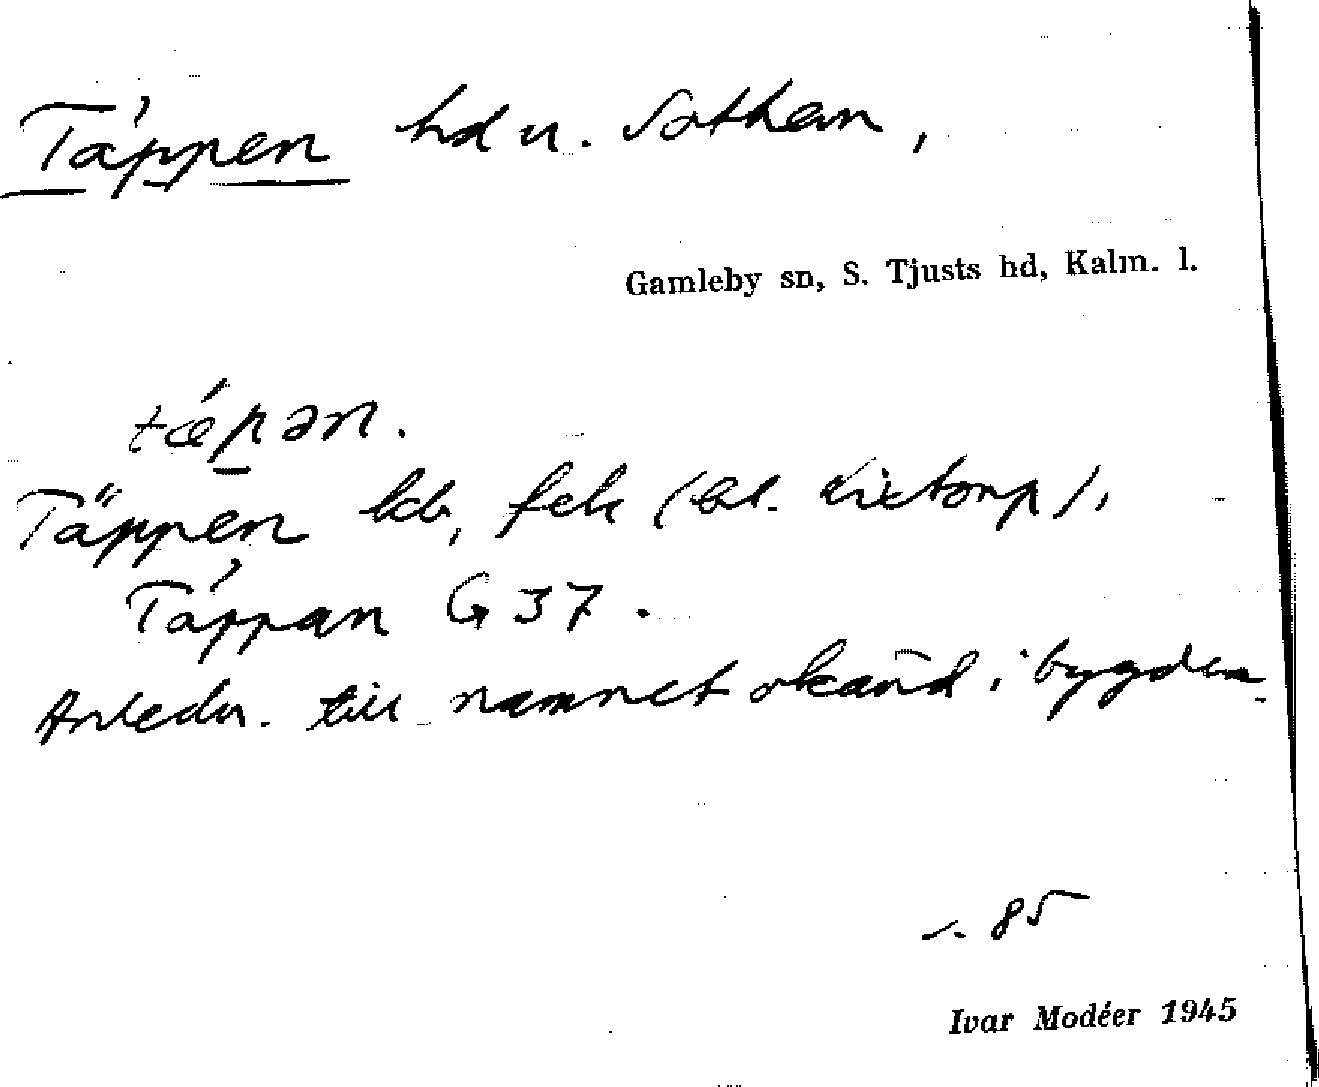 Täppen hd u. Sothem,
Gamleby sn, S. Tjusts hd, Kalm. l.
tǽpən.
Täppen kb, fek (bl. Lixtorp),
Täppan G 37.
Anledn. till namnet okänd i bygden.
s. 85
Ivar Modéer 1945